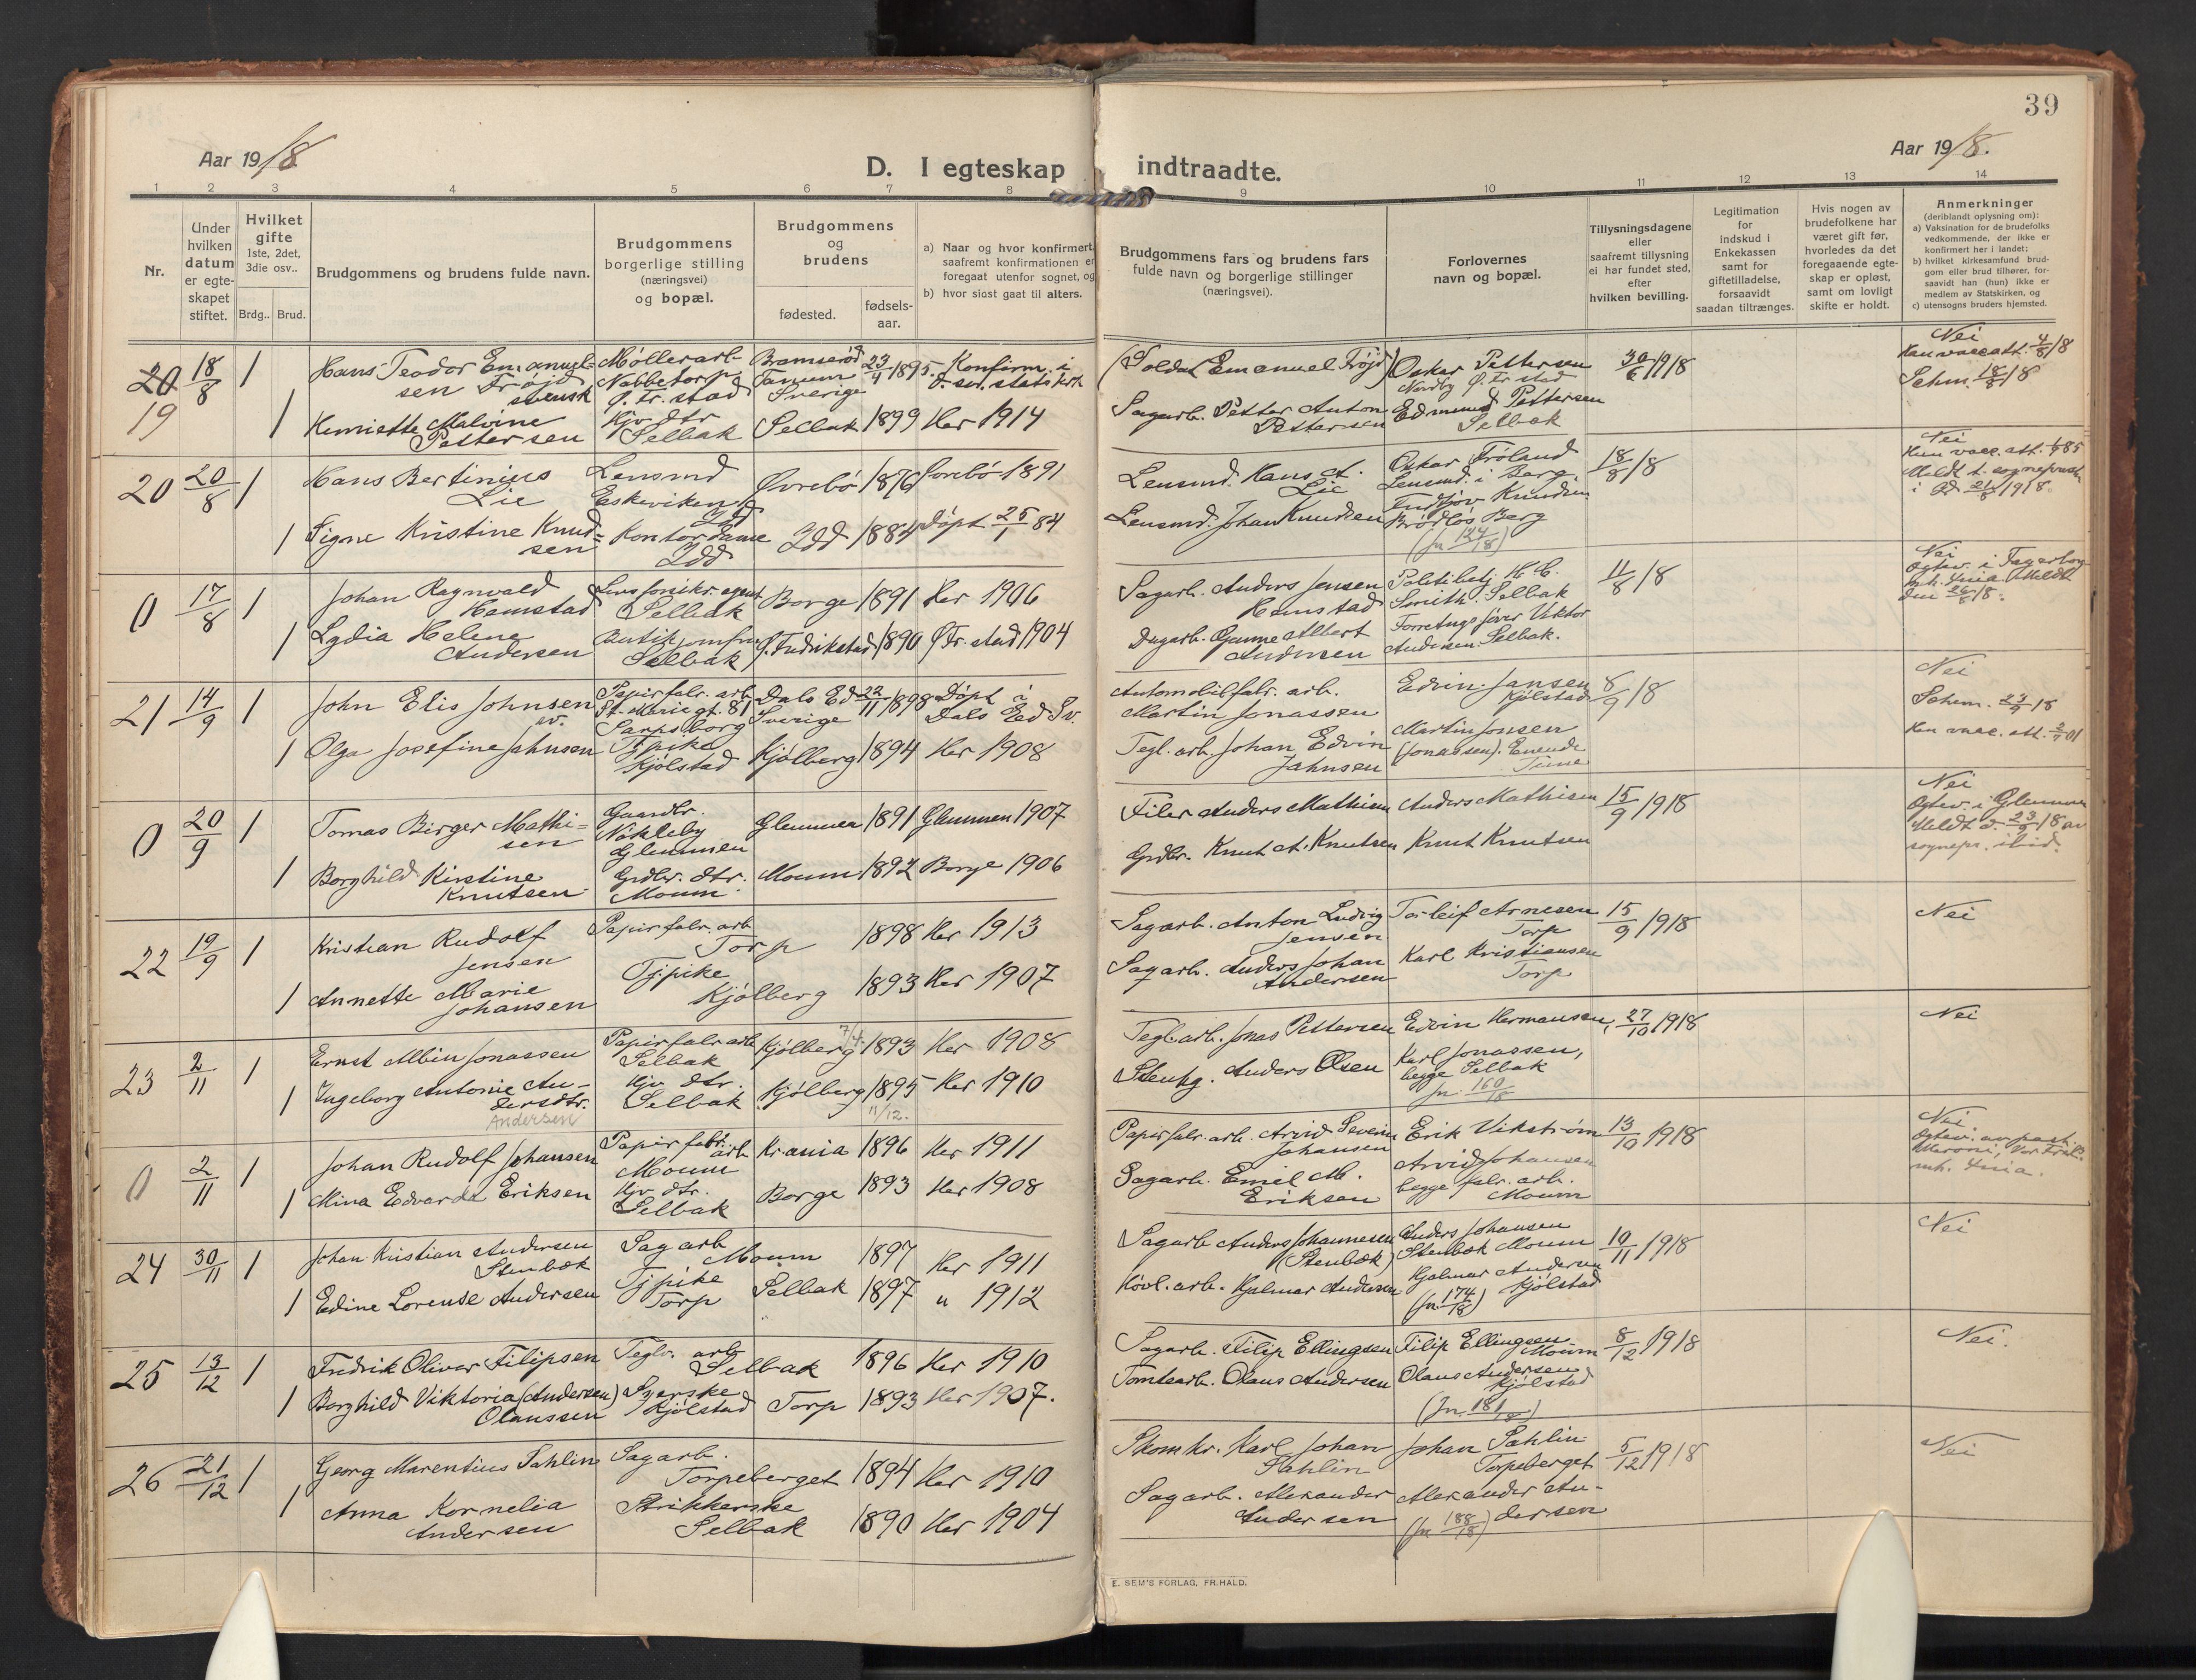 39
Aar 1918.
D. I egteskap indtraadte.
Aar 1918.
1 2 3 4 5 6 7 8 9 10 11 12 13 14
Nr.
Under
hvilken
datum
er egte-
skapet
stiftet.
Hvilket
gifte
1ste, 2det,
3die osv..
Brdg.. Brud.
Brudgommens og brudens fulde navn.
Brudgommens
borgerlige stilling
(næringsvei)
og bopæl.
Brudgommens
og
brudens
fødested.
fødsels-
aar.
a) Naar og hvor konfirmert,
saafremt konfirmationen er
foregaat utenfor sognet, og
b) hvor sidst gaat til alters.
Brudgommens fars og brudens fars
fulde navn og borgerlige stillinger
(næringsvei).
Forlovernes
navn og bopæl.
Tillysningsdagene
eller
saafremt tillysning
ei har fundet sted,
efter
hvilken bevilling.
Legitimation
for
indskud i
Enkekassen
samt for
giftetilladelse,
forsaavidt
saadan tiltrænges.
Hvis nogen av
brudefolkene har
været gift før,
hvorledes da det
foregaaende egte-
skap er opløst,
samt om lovligt
skifte er holdt.
Anmerkninger
(deriblandt oplysning om):
a) Vaksination for de brudefolks
vedkommende, der ikke er
konfirmert her i landet;
b) hvilket kirkesamfund brud-
gom eller brud tilhører, for-
saavidt han (hun) ikke er
medlem av Statskirken, og
c) utensogns bruders hjemsted.
20
19
18/8
1
Hans Teodor Emanuel-
sen Fröjd
svensk
Møllerarb.
Nabbetorp
Ø. Fr. stad
Tanum
Sverige
23/4 1895.
Konfirm. i
(Soldat Emanuel Fröjd)
Oskar Pettersen
Nordby Ø. Fr. stad
30/6 1918
Nei
Schm. 18/8 18
1
Henriette Malvine
Pettersen
Hjv. dtr
Selbak
Selbak
1899
Her 1914
Sagarb. Petter Anton
Pettersen
Edmund Pettersen
Selbak
20
20/8
1
Hans Bertinius
Lie
Lensmd
Eskeviken
Idd
Øvrebö
1876
Övrebö 1891
Lensmd. Hans A.
Lie
Oskar Fröland
Lensmd. i Berg
18/8 18
Nei
Meldt t. sogneprest
i Id 21/8 1918.
1
Signe Kristine Knud-
sen
Kontordame
Idd
Idd
1884
Döpt 25/1 84
Lensmd. Johan Knudsen
Fridtjov Knudsen
Brödløs Berg
(Jn 124/18)
0
17/8
1
Johan Ragnvald
Hamstad
Livsforsikr. agent
Selbak
Borge
1891
Her 1906
Sagarb. Anders Jensen
Hamstad
Politibetj. H. C.
Smith. Selbak
11/8 18
Nei
Egtev. i Fagerborg
mh. Kria. Meldt
den 26/8 18.
1
Lydia Helene
Andersen
Butikjomfru
Selbak
Ø. Fredrikstad
1890
Ø Fr. stad 1904
Dagarb. Gunne Albert
Andersen
Forretngsfører Viktor
Andersen. Selbak.
21
14/9
1
John Elis Johnsen
sv.
Papirfabr. arb
St. Marie gt. 81
Sarpsborg
Dals Ed
Sverige
22/11 1898
Döpt i
Dals Ed Sv.
Automobilfabr. arb.
Martin Jonassen
Edvin Jansen
Kjölstad
8/9 18
Nei
Schem. 23/9 18
1
Olga Josefine Jahnsen
Tjpike
Kjölstad
Kjölberg
1894
Her 1908
Tegl. arb. Johan Edvin
Jahnsen
Martin Jonsen
(Jonassen).
0
20/9
1
Tomas Birger Mathi-
sen
Gaardbr.
Nökleby
Glemmen
Glemmen
1891
Glemmen 1907
Filer Anders Mathisen
Anders Mathisen
15/9 1918
Nei
Egtev. i Glemmen
Meldt d. 23/9 18 av
sognepr. ibid.
1
Borghild Kirstine
Knutsen
Grdbr. dtr.
Moum
Moum
1892
Borge 1906
Grdbr. Knut A. Knutsen
Knut Knutsen
22
19/9
1
Kristian Rudolf
Jensen
Papirfabr. arb
Torp
1898
Her 1913
Sagarb. Anton Ludvig
Jensen
Torleif Arnesen
Torp
15/9 1918
Nei
1
Annette Marie
Johansen
Tjpike
Kjölberg
1893
Her 1907
Sagarb. Anders Johan
Andersen
Karl Kristiansen
Torp
23
2/11
1
Ernst Albin Jonassen
Papirfabr arb
Selbak
Kjölberg
7/4. 1893
Her 1908
Tegl. arb. Jonas Pettersen
Edvin Hermansen,
27/10 1918
Nei
1
Ingeborg Antonie An-
dersdtr.
Andersen
Hjv dtr.
Selbak
Kjölberg
1895
11/12.
Her 1910
Stenhg. Anders Olsen
Karl Jonassen,
begge Selbak
Jn. 160/18
0
2/11
1
Johan Rudolf Johansen
Papirfabr.
arb
Moum
Kr.ania
1896
Her 1911
Papirfabr. arb. Arvid Severin
Johansen
Erik Vikström
13/10 1918
Nei.
mh. Kria.
1
Mina Edvardt Eriksen
Hjv dtr.
Selbak
Borge
1893
Her 1908
Sagarb. Emil M.
Eriksen
Arvid Johansen
begge fabr. arb.
Moum
24
30/11
1
Johan Kristian Andersen
Stenbæk
Sagarb
Moum
1897
Her 1911
Sagarb Anders Johannesen
(Stenbæk)
Anders Johansen
Stenbæk Moum
10/11 1918
Nei
1
Edine Lorense Andersen
Tjpike
Torp
Selbak
1897
" 1912
Hövl. arb. Hjalmar Andersen
Hjalmar Andersen
Kjölstad
(Jn. 174/18)
25
13/12
1
Fredrik Oliver Filipsen
Teglv. arb
Selbak
1896
Her 1910
Sagarb. Filip Ellingsen
Filip Ellingsen
Moum
8/12 1918
Nei.
1
Borghild Viktoria (Andersen)
Olaussen
Syerske
Kjölstad
Torp
1893
Her 1907.
Tomtearb. Olaus Andersen
Olaus Andersen
Kjölstad
(Jn. 181/18)
26
21/12
1
Georg Marentius Sahlin
Sagarb.
Torpeberget
1894
Her 1910
Skomkr. Karl Johan
Sahlin
Johan Sahlin
Torpeberget
5/12 1918
Nei
1
Anna Kornelia
Andersen
Strikkerske
Selbak
1890
Her 1904
Sagarb. Alexander
Andersen
Alexander An-
dersen
(Jn 188/18)
E. SEM'S FORLAG, FR.HALD.